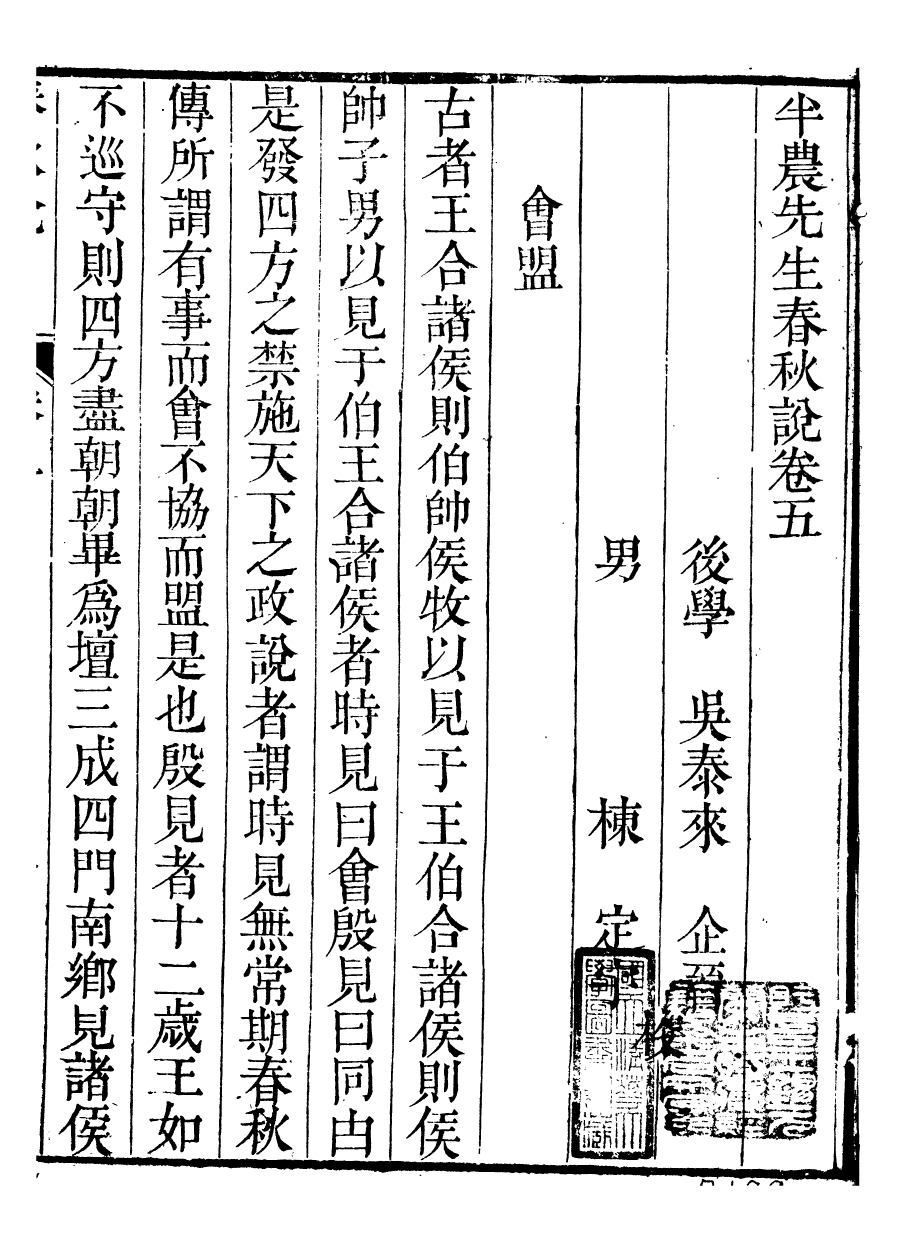 半農先生春秋說卷五
後學　吳泰來　企晉
男　棟　定宇　校
會盟
古者王合諸侯則伯帥侯牧以見于王伯合諸侯則侯
帥子男以見于伯王合諸侯者時見曰會殷見曰同由
是發四方之禁施天下之政說者謂時見無常期春秋
傳所謂有事而會不協而盟是也殷見者十二歲王如
不巡守則四方盡朝朝畢爲壇三成四門南鄉見諸侯